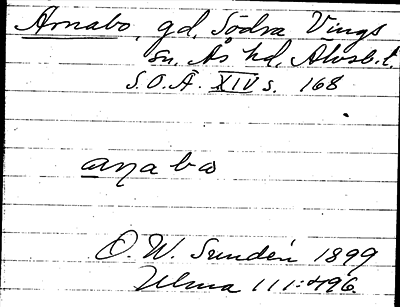 Arnabo, gd, Södra Vings
sn, Ås hd, Älvsb. l.
S.O.Ä. XIV s. 168
aṇabo
O. W. Sundén 1899
Ulma 111:496.